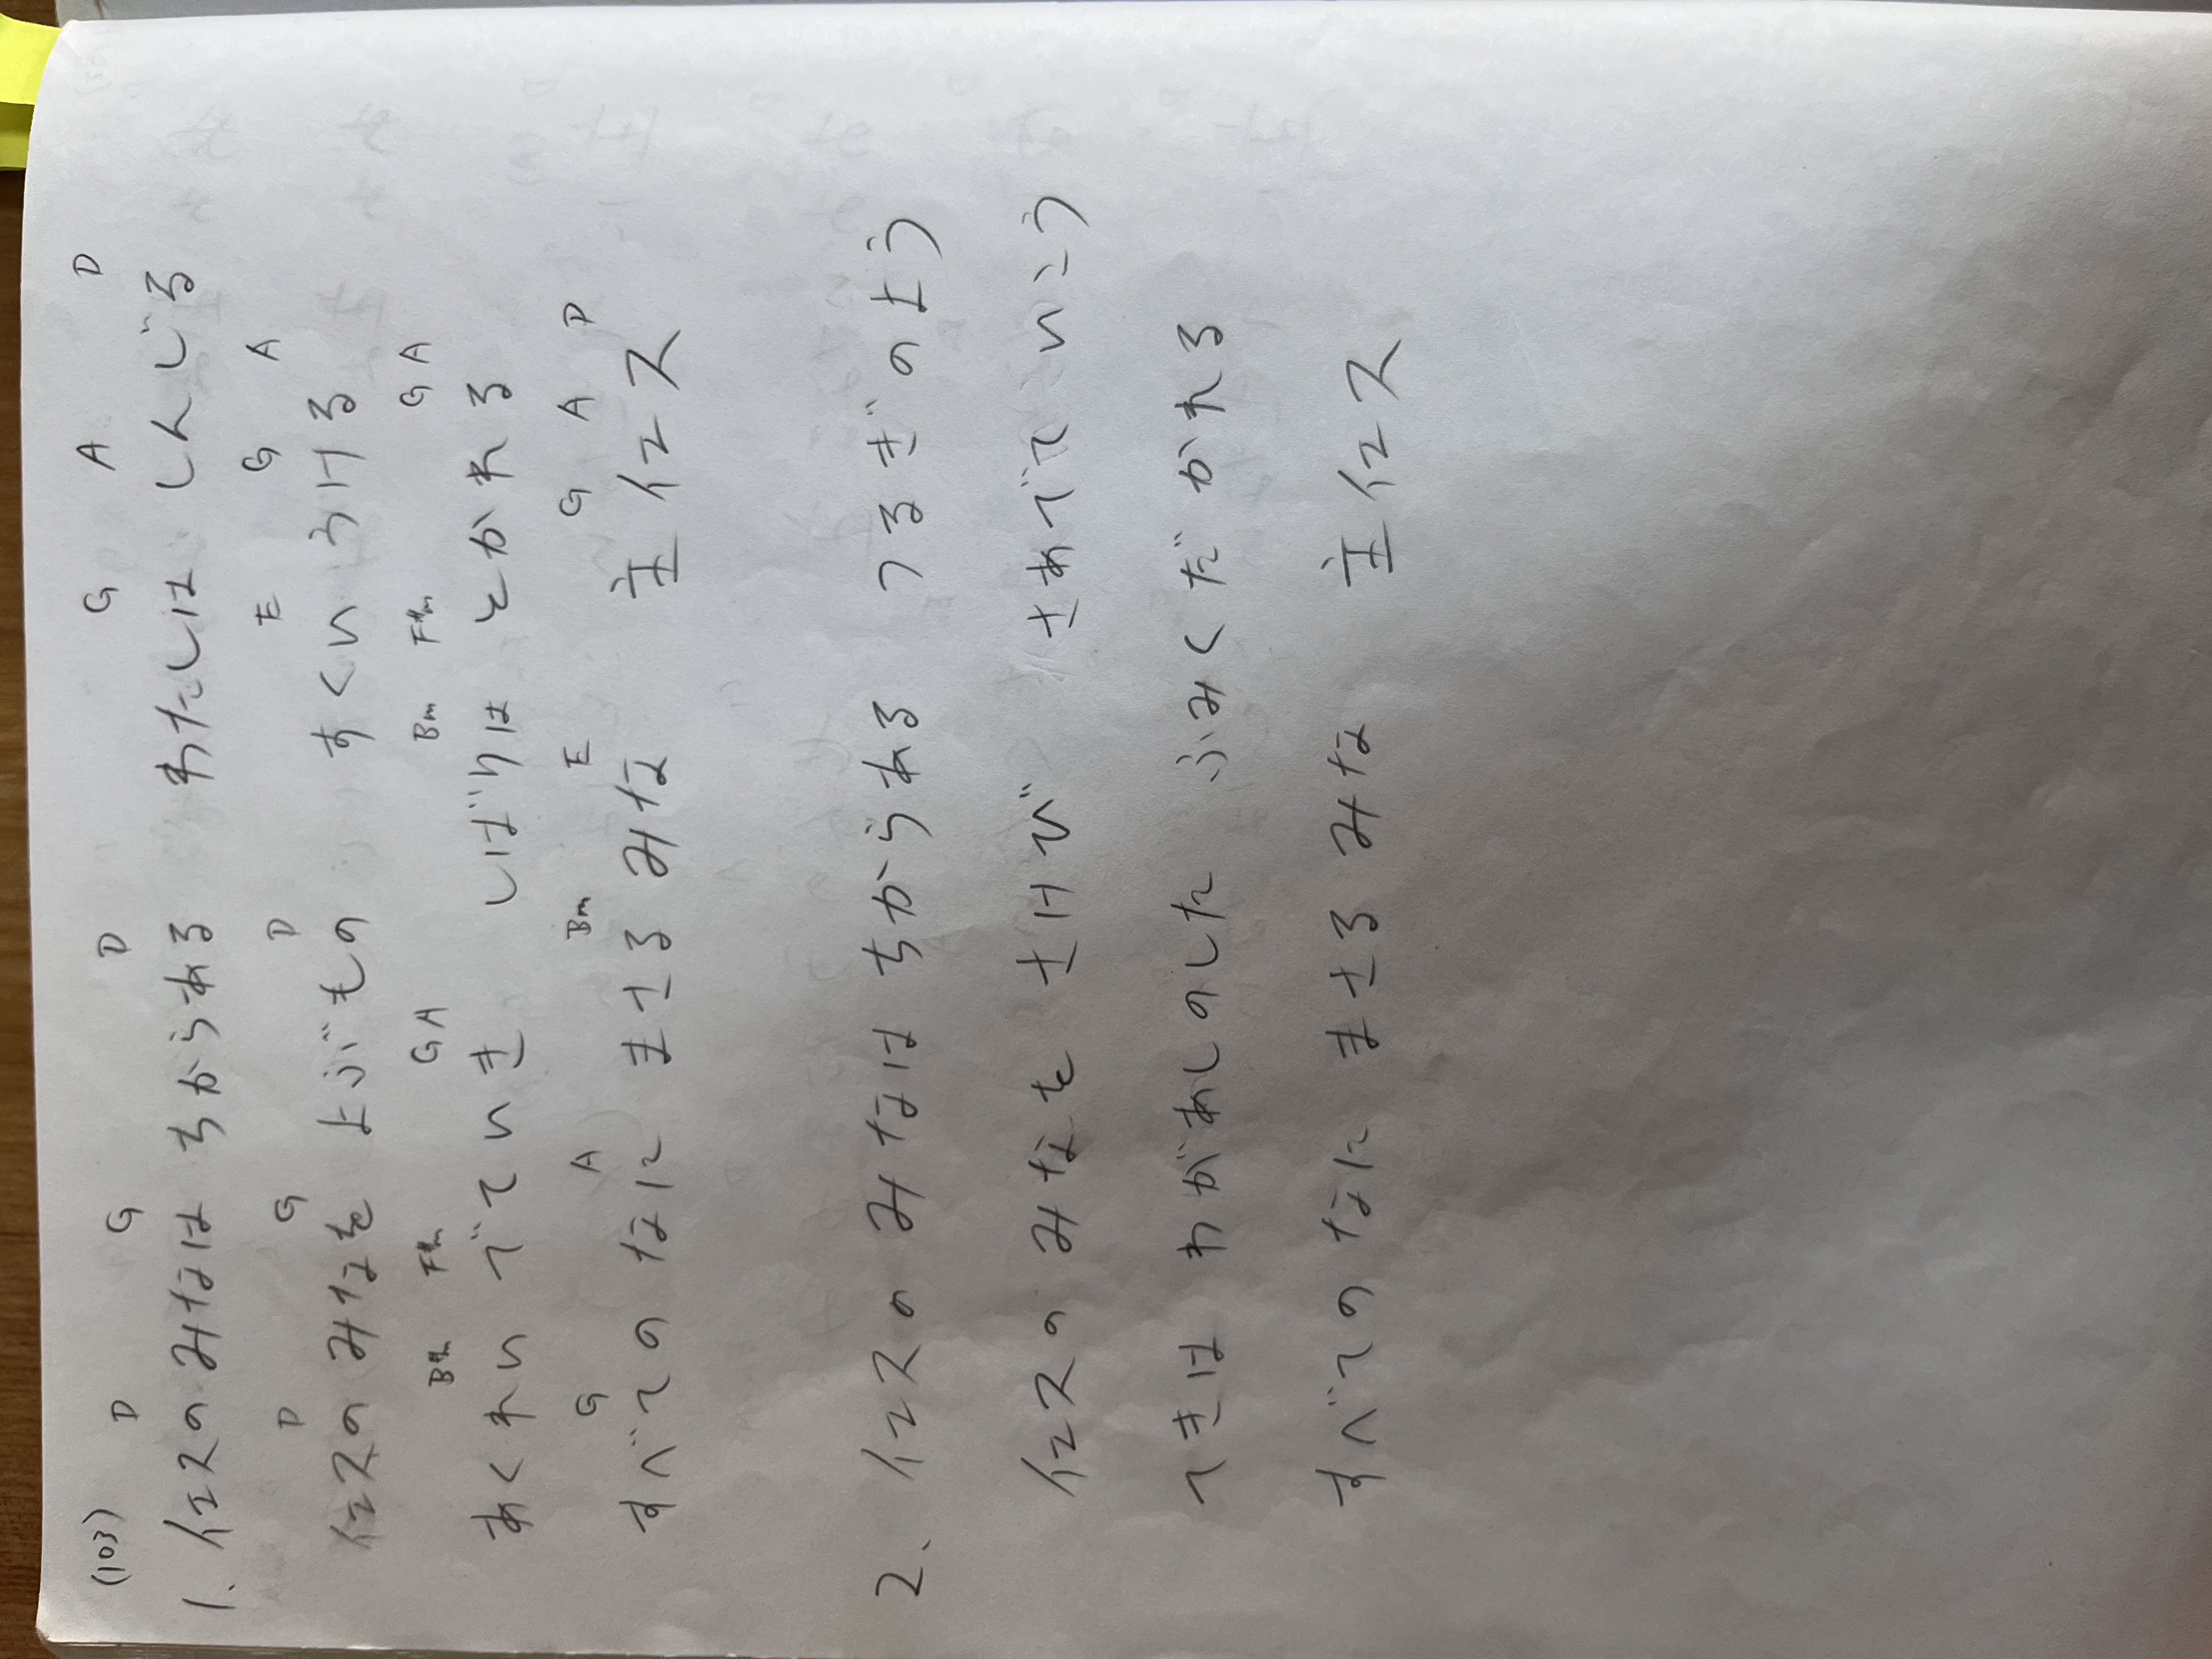 (103)
D G D G A D
1. イエスのみなは ちからある わたしは しんじる
D G D E G A
イエスの みなを よぶもの すくい うける
Bm F#m G A Bm F#m G A
あくれい でていき しばりは とかれる
G A Bm E G A D
すべての なに まさる みな 主イエス
2. イエスの みなは ちからある つるぎのよう
イエスの みなを さけび さあでていこう
てきは わがあしのした ふみくだかれる
すべての なに まさる みな 主イエス